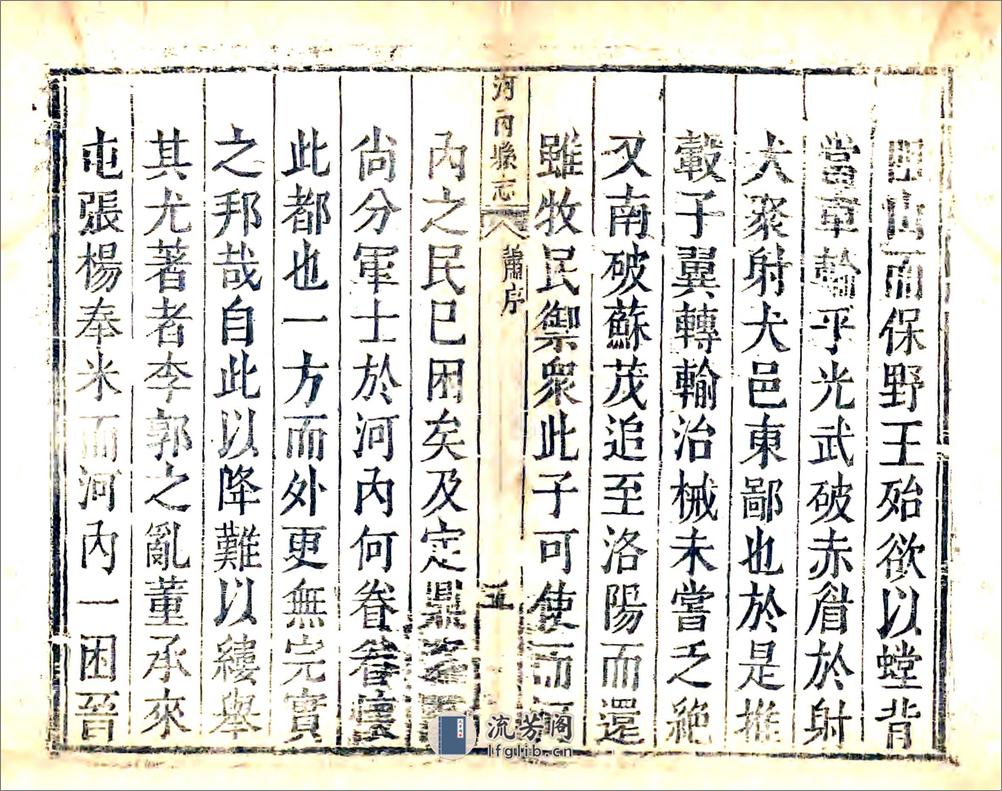 山而保野王殆欲以螳背
當車輪乎光武破赤眉於射
犬聚射犬邑東鄙也於是推
轂子翼轉輸治械未嘗乏絶
又南破蘇茂追至洛陽而還
雖牧民御衆此子可使而
河內縣志
蕭序
五
內之民已困矣及定鼎
尙分軍士於河內何眷眷懷
此都也一方而外更無完實
之邦哉自此以降難以縷舉
其尤著者李郭之亂董承來
屯張楊奉米而河內一困晉
流芳閣
lfglib.cn